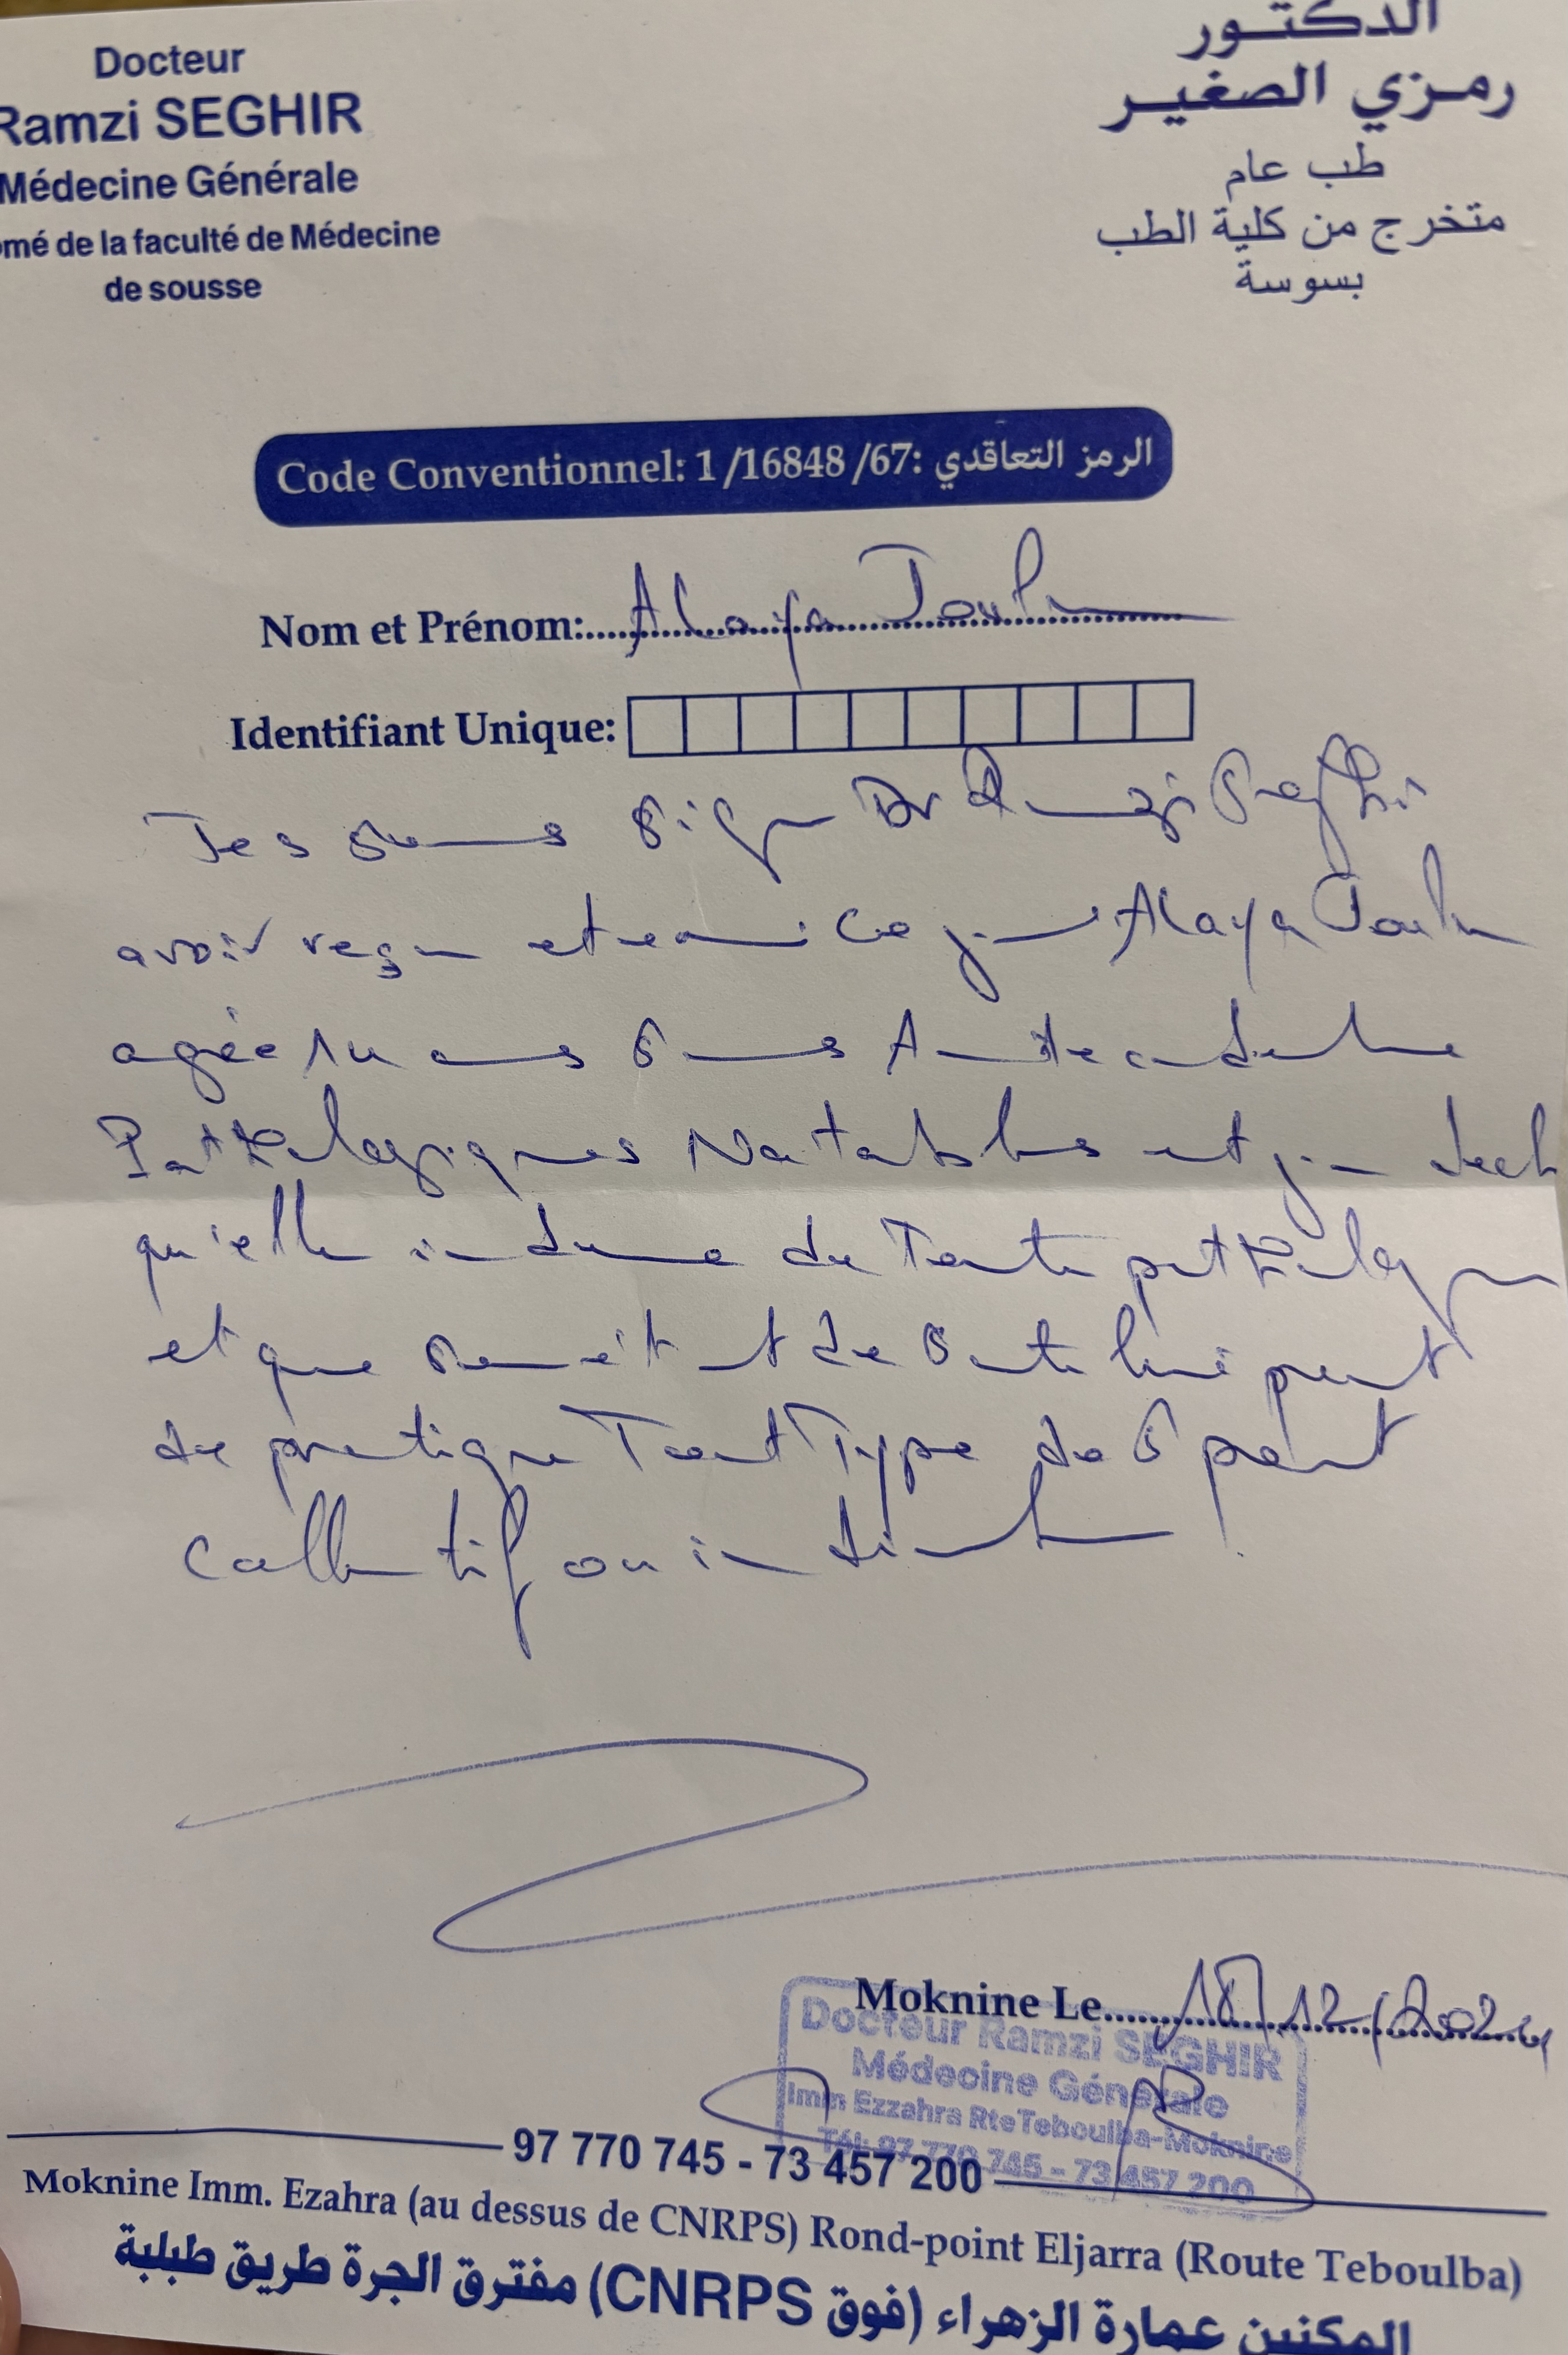 Docteur
Ramzi SEGHIR
Médecine Générale
omé de la faculté de Médecine
de sousse
الدكتور
رمزي الصغير
طب عام
متخرج من كلية الطب
بسوسة
Code Conventionnel: 1/16848/67: الرمز التعاقدي
Nom et Prénom: Alaya
Identifiant Unique:
Je soussigné Dr Ramzi Seghir
avoir reçu et examiné ce jour Alaya
agée ans sans Antécédents
Pathologiques Notables et
qu'elle indemne de Toute pathologie
et que son état de santé lui permet
de pratiquer Tout Type de Sport
Collectif ou individuel
Moknine Le 18/12/2024
Docteur Ramzi SEGHIR
Médecine Générale
Imm Ezzahra Rte Teboulba-Moknine
Tél: 97 770 745 - 73 457 200
97 770 745 - 73 457 200
Moknine Imm. Ezahra (au dessus de CNRPS) Rond-point Eljarra (Route Teboulba)
المكنين عمارة الزهراء (فوق CNRPS) مفترق الجرة طريق طبلبة